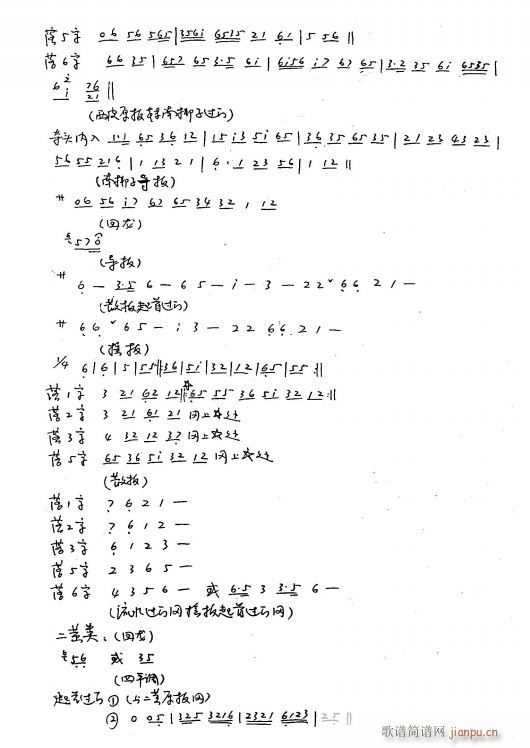 落5字 06 56 565 | 356i 6535 21 61 | 5 56 ||
落6字 66 35 | 657 65 3.5 6i | 6i56 i7 67 65 | 3.2 35 6i 6535 |
6 2/i 76/21 ||
1.1 65 36 12 | 15 i3 5i 65 | 36 35 65 35 | 21 23 43 23 |
56 55 216 | 1 13 21 | 6.1 23 56 | 1 12 ||
(南梆子导板)
サ 06 56 i7 67 65 34 32 1 12
(回龙)
570
(导板)
サ 6 — 3.5 6 — 6 5 — i — 3 — 22 ˇ 66 2 1 —
(散板起首过门)
サ 66 ˇ 65 — i 3 — 22 66 21 —
(摇板)
1/4 6 | 6 | 5 | 55 || 36 | 5i | 32 | 12 | 65 | 55 :||
落1字 3 21 62 12 || 65 55 36 5i 32 12 :||
落2字 3 21 61 21 同上
落3字 4 32 12 37 同上
落5字 65 36 5i 32 12 同上
(散板)
落1字 7 6 2 1 —
落2字 7 6 1 2 —
落3字 6 1 2 3 —
落5字 2 3 6 5 —
落6字 4 3 5 6 — 或 6.5 3 3.5 6 —
(流水过门同摇板起首过门同)
二黄类: (回龙)
56 或 35
(四平调)
起首过门 ① (与二黄原板同)
② 0 05 | 325 3216 | 2321 6123 | 25 |
歌谱简谱网
jianpu.cn